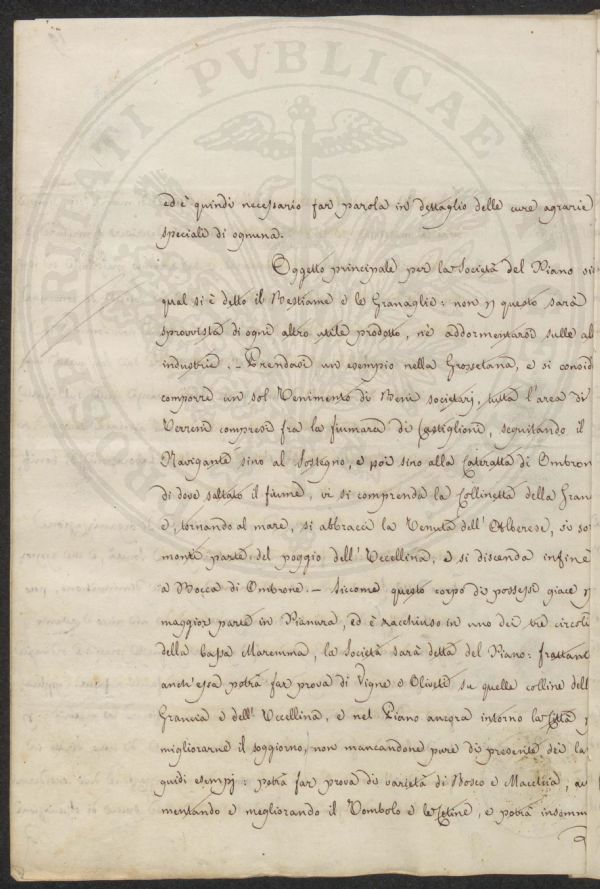 PROSPERITATI PVBLICAE
ed è quindi necessario far parola in dettaglio delle cure agrarie
speciali di ognuna.
Oggetto principale per la Società del Piano si
qual si è detto il Bestiame e le Granaglie: non p questo sarà
sprovvista di ogni altro utile prodotto, nè addormentarsi sulle al
industrie. Prendasi un esempio nella Grossetana, e si consid
comporre un sol Tenimento di Beni societarj, tutta l'area di
Terreni compresi fra la fiumara di Castiglione, seguitando il
Navigante sino al Sostegno, e poi sino alla Cateratta di Ombron
di dove saltato il fiume, vi si comprenda la Collinetta della Gran
e, tornando al mare, si abbracci la Tenuta dell'Alberese, si so
monti parte del poggio dell'Uccellina, e si discenda infine
a Bocca di Ombrone. — Siccome questo corpo di possessi giace p
maggior parte in Pianura, ed è racchiuso in uno dei tre circoli
della bassa Maremma, la Società sarà detta del Piano: frattant
anch'essa potrà far prova di Vigne e Oliveti su quelle colline dell
Grancia e dell'Uccellina, e nel Piano ancora intorno la Città p
migliorarne il soggiorno, non mancandone pure di presente dei la
guidi esempj: potrà far prova di varietà di Bosco e Macchia, au
mentando e megliorando il Tombolo e le Cetine, e potrà insomm